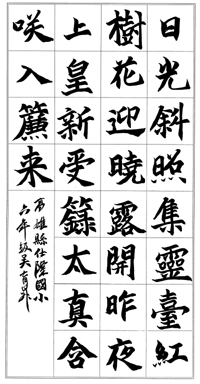 日光斜照集靈臺紅
樹花迎曉露開昨夜
上皇新受籙太真含
咲入簾来
高雄縣仕隆國小
六年級吳育昇